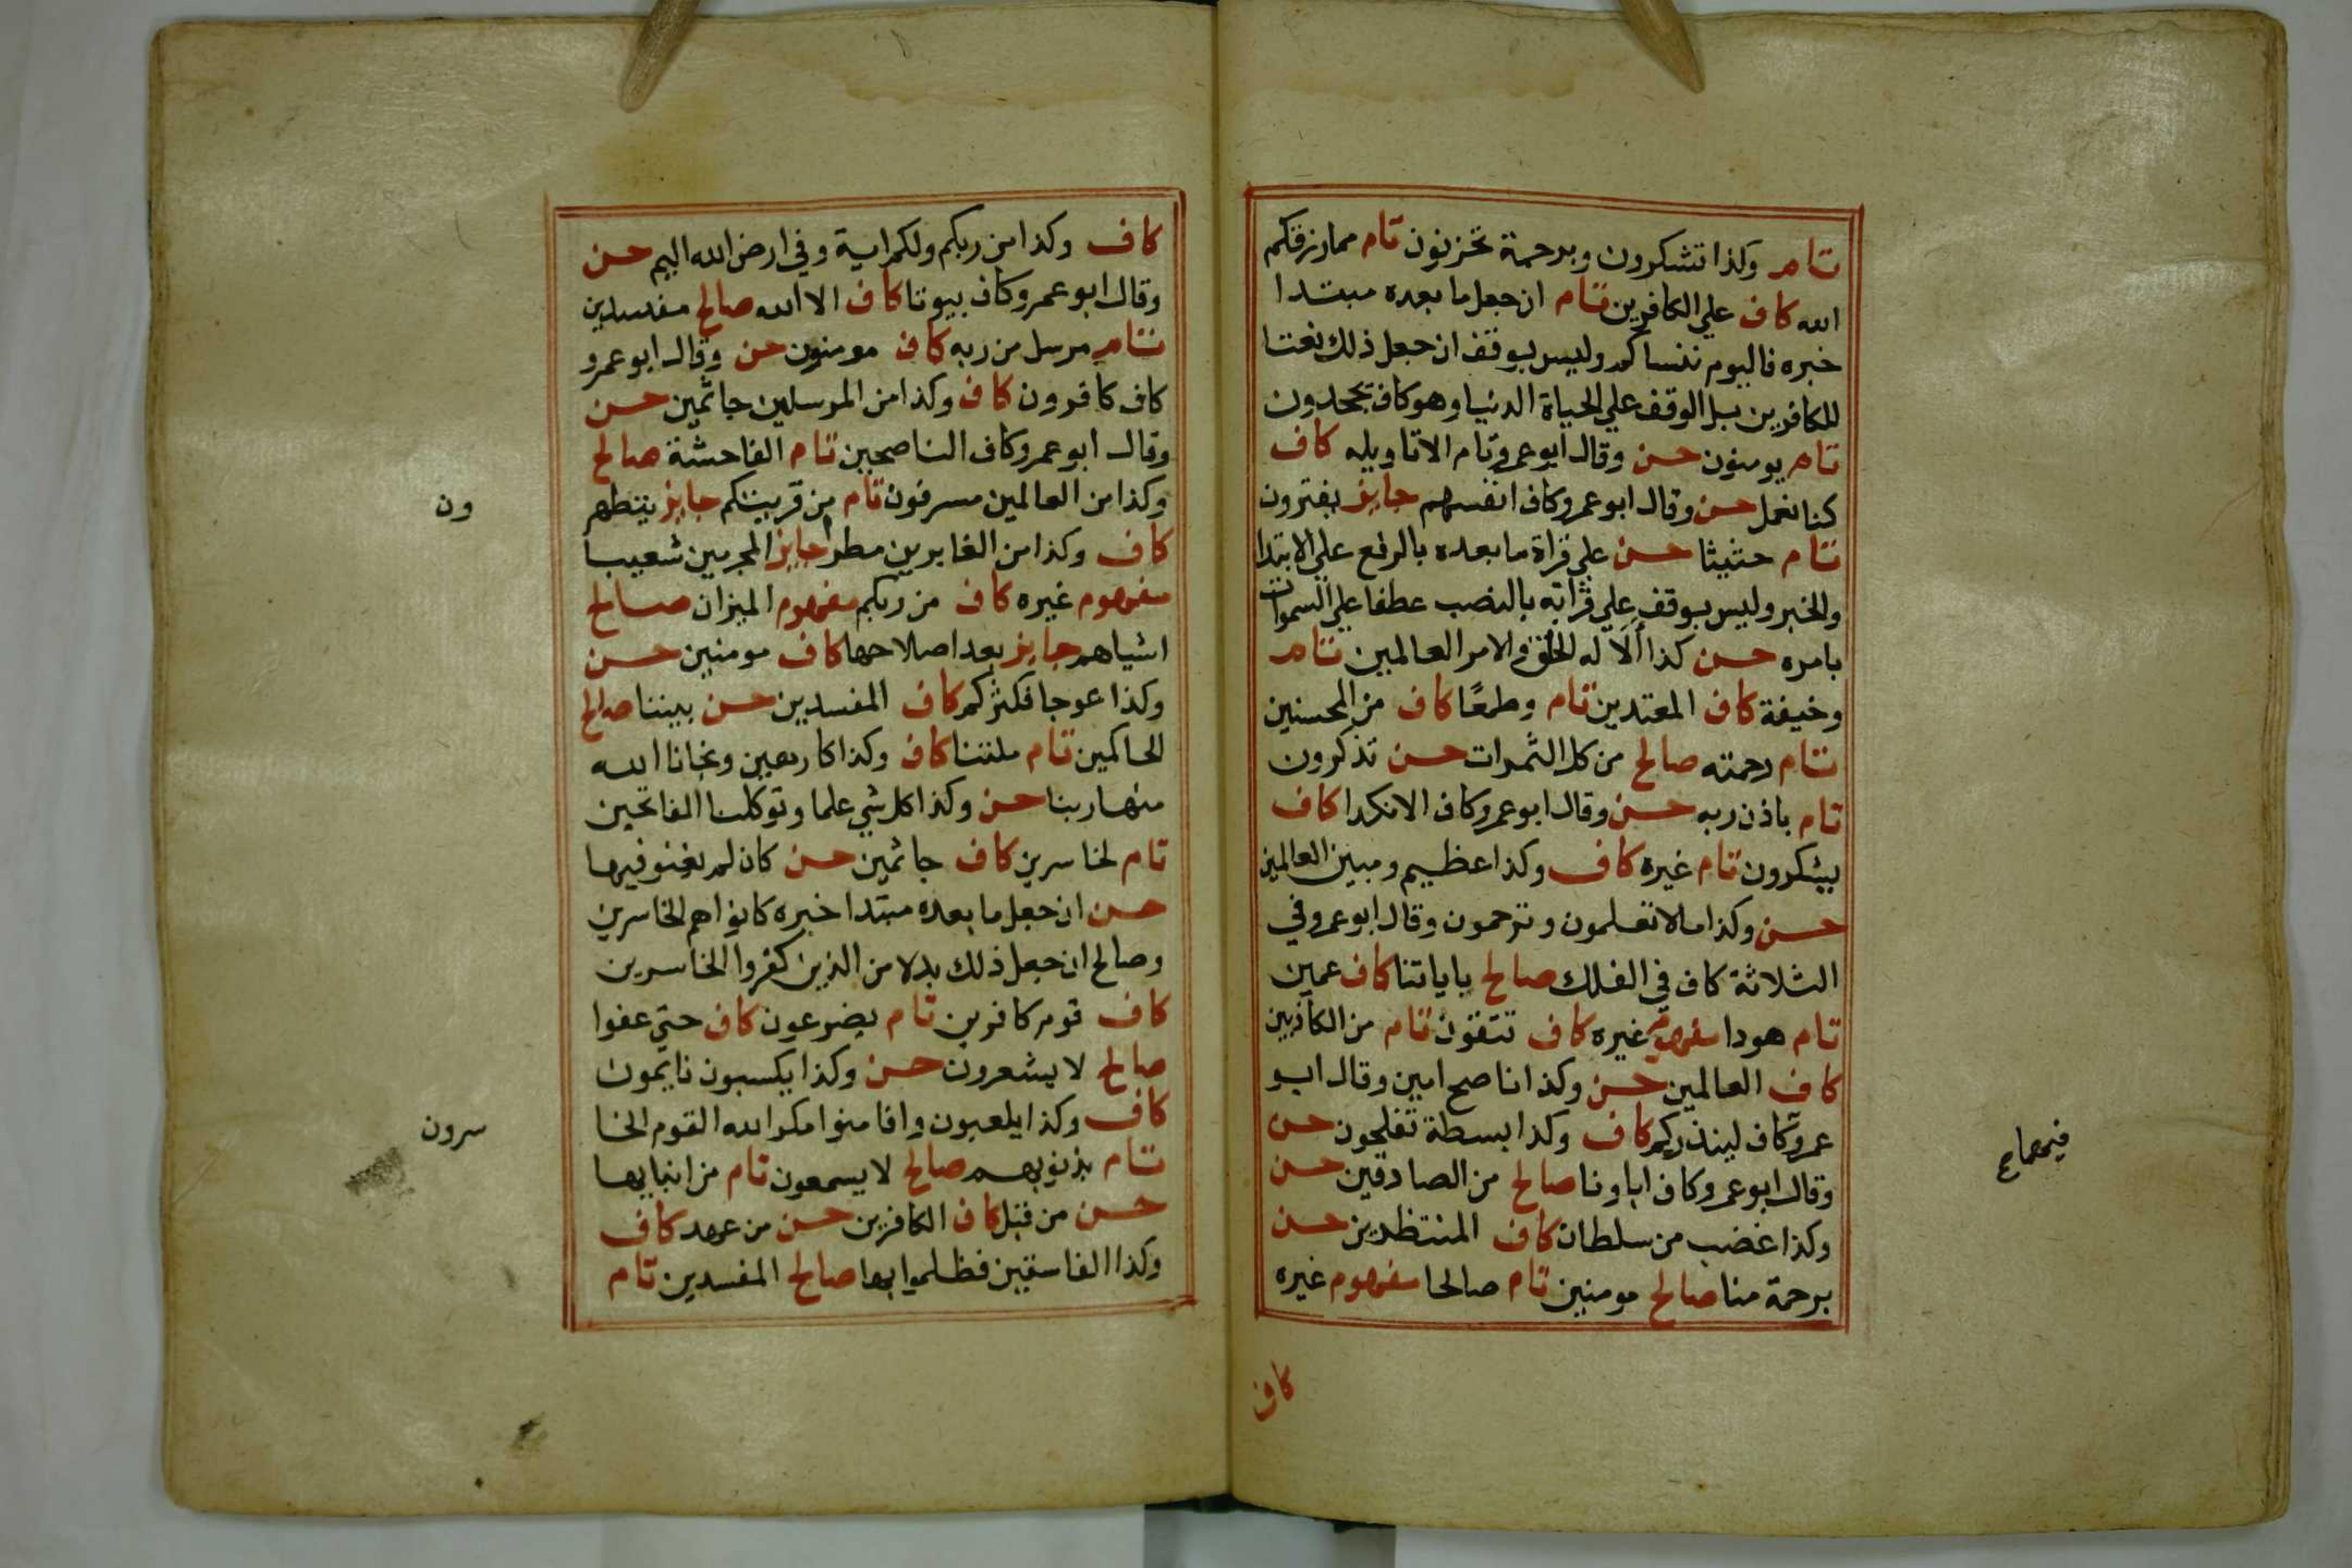 تام وكذا تشكرون وبرحمة تحزنون تام مما رزقكم
الله كاف علي الكافرين تام ان جعل ما بعده مبتدا
خبره فاليوم ننساكم وليس بوقف ان جعل ذلك نعتا
للكافرين بل الوقف علي الحياة الدنيا وهو كاف يجحدون
تام يومنون حسن وقال ابو عمرو تام الا تاويله كاف
كنا نعمل حسن وقال ابو عمرو كاف انفسهم جايز يفترون
تام حثيثا حسن علي قراة ما بعده بالرفع علي الابتدا
والخبر وليس بوقف علي قراته بالنصب عطفا علي السموات
بامره حسن كذا ألا له الخلق والامر العالمين تام
وخيفة كاف المعتدين تام وطمعًا كاف من المحسنين
تام رحمته صالح من كل الثمرات حسن تذكرون
تام باذن ربه حسن وقال ابو عمرو كاف الا نكدا كاف
يشكرون تام غيره كاف وكذا عظيم ومبين العالمين
حسن وكذا ما لا تعلمون وترحمون وقال ابو عمرو في
الثلاثة كاف في الفلك صالح باياتنا كاف عمين
تام هودا مفهوم غيره كاف تتقون تام من الكاذبين
كاف العالمين حسن وكذا ناصح امين وقال ابو
عمرو كاف لينذركم كاف وكذا بسطة تفلحون حسن
وقال ابو عمرو كاف اباونا صالح من الصادقين حسن
وكذا غضب من سلطان كاف المنتظرين حسن
برحمة منا صالح مومنين تام صالحا مفهوم غيره
كاف
كاف وكذا من ربكم ولكم اية وفي ارض الله اليم حسن
وقال ابو عمرو كاف بيوتا كاف الا الله صالح مفسدين
تام مرسل من ربه كاف مومنون حسن وقال ابو عمرو
كاف كافرون كاف وكذا من المرسلين جاثمين حسن
وقال ابو عمرو كاف الناصحين تام الفاحشة صالح
وكذا من العالمين مسرفون تام من قريتكم جايز يتطهر
ون
كاف وكذا من الغابرين مطرا جايز المجرمين شعيبا
مفهوم غيره كاف من ربكم مفهوم الميزان صالح
اشياهم جايز بعد اصلاحها كاف مومنين حسن
وكذا عوجا فكثركم كاف المفسدين حسن بيننا صالح
الحاكمين تام ملتنا كاف وكذا كارهين ونجانا الله
منها ربنا حسن وكذا كل شي علما وتوكلنا الفاتحين
تام لخاسرين كاف جاثمين حسن كان لم يغنو فيها
حسن ان جعل ما بعده مبتدا خبره كانوا هم الخاسرين
وصالح ان جعل ذلك بدلا من الذين كفروا الخاسرين
كاف قوم كافرين تام يضرعون كاف حتي عفوا
صالح لا يشعرون حسن وكذا يكسبون نايمون
كاف وكذا يلعبون وافامنوا مكر الله القوم الخا
سرون
تام بذنوبهم صالح لا يسمعون تام من انبايها
حسن من قبل كاف الكافرين حسن من عهد كاف
وكذا الفاسقين فظلموا بها صالح المفسدين تام